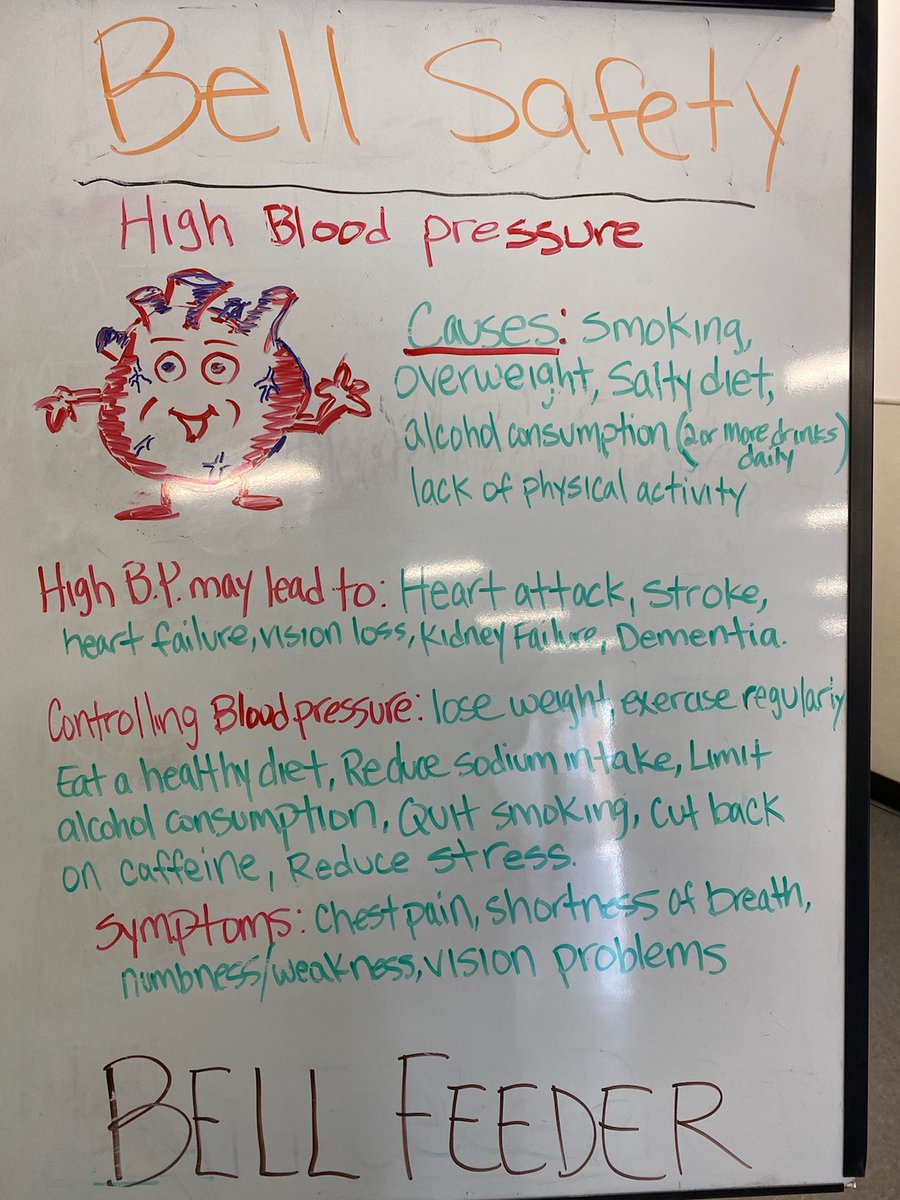 Bell Safety
High Blood pressure
Causes: Smoking,
overweight, Salty diet,
alcohol consumption (2 or more drinks
daily)
lack of physical activity
High B.P. may lead to: Heart attack, Stroke,
heart failure, vision loss, Kidney Failure, Dementia.
Controlling Blood pressure: lose weight, exercise regularly
Eat a healthy diet, Reduce sodium intake, Limit
alcohol consumption, Quit smoking, Cut back
on caffeine, Reduce stress.
Symptoms: Chest pain, shortness of breath,
numbness/weakness, vision problems
BELL FEEDER